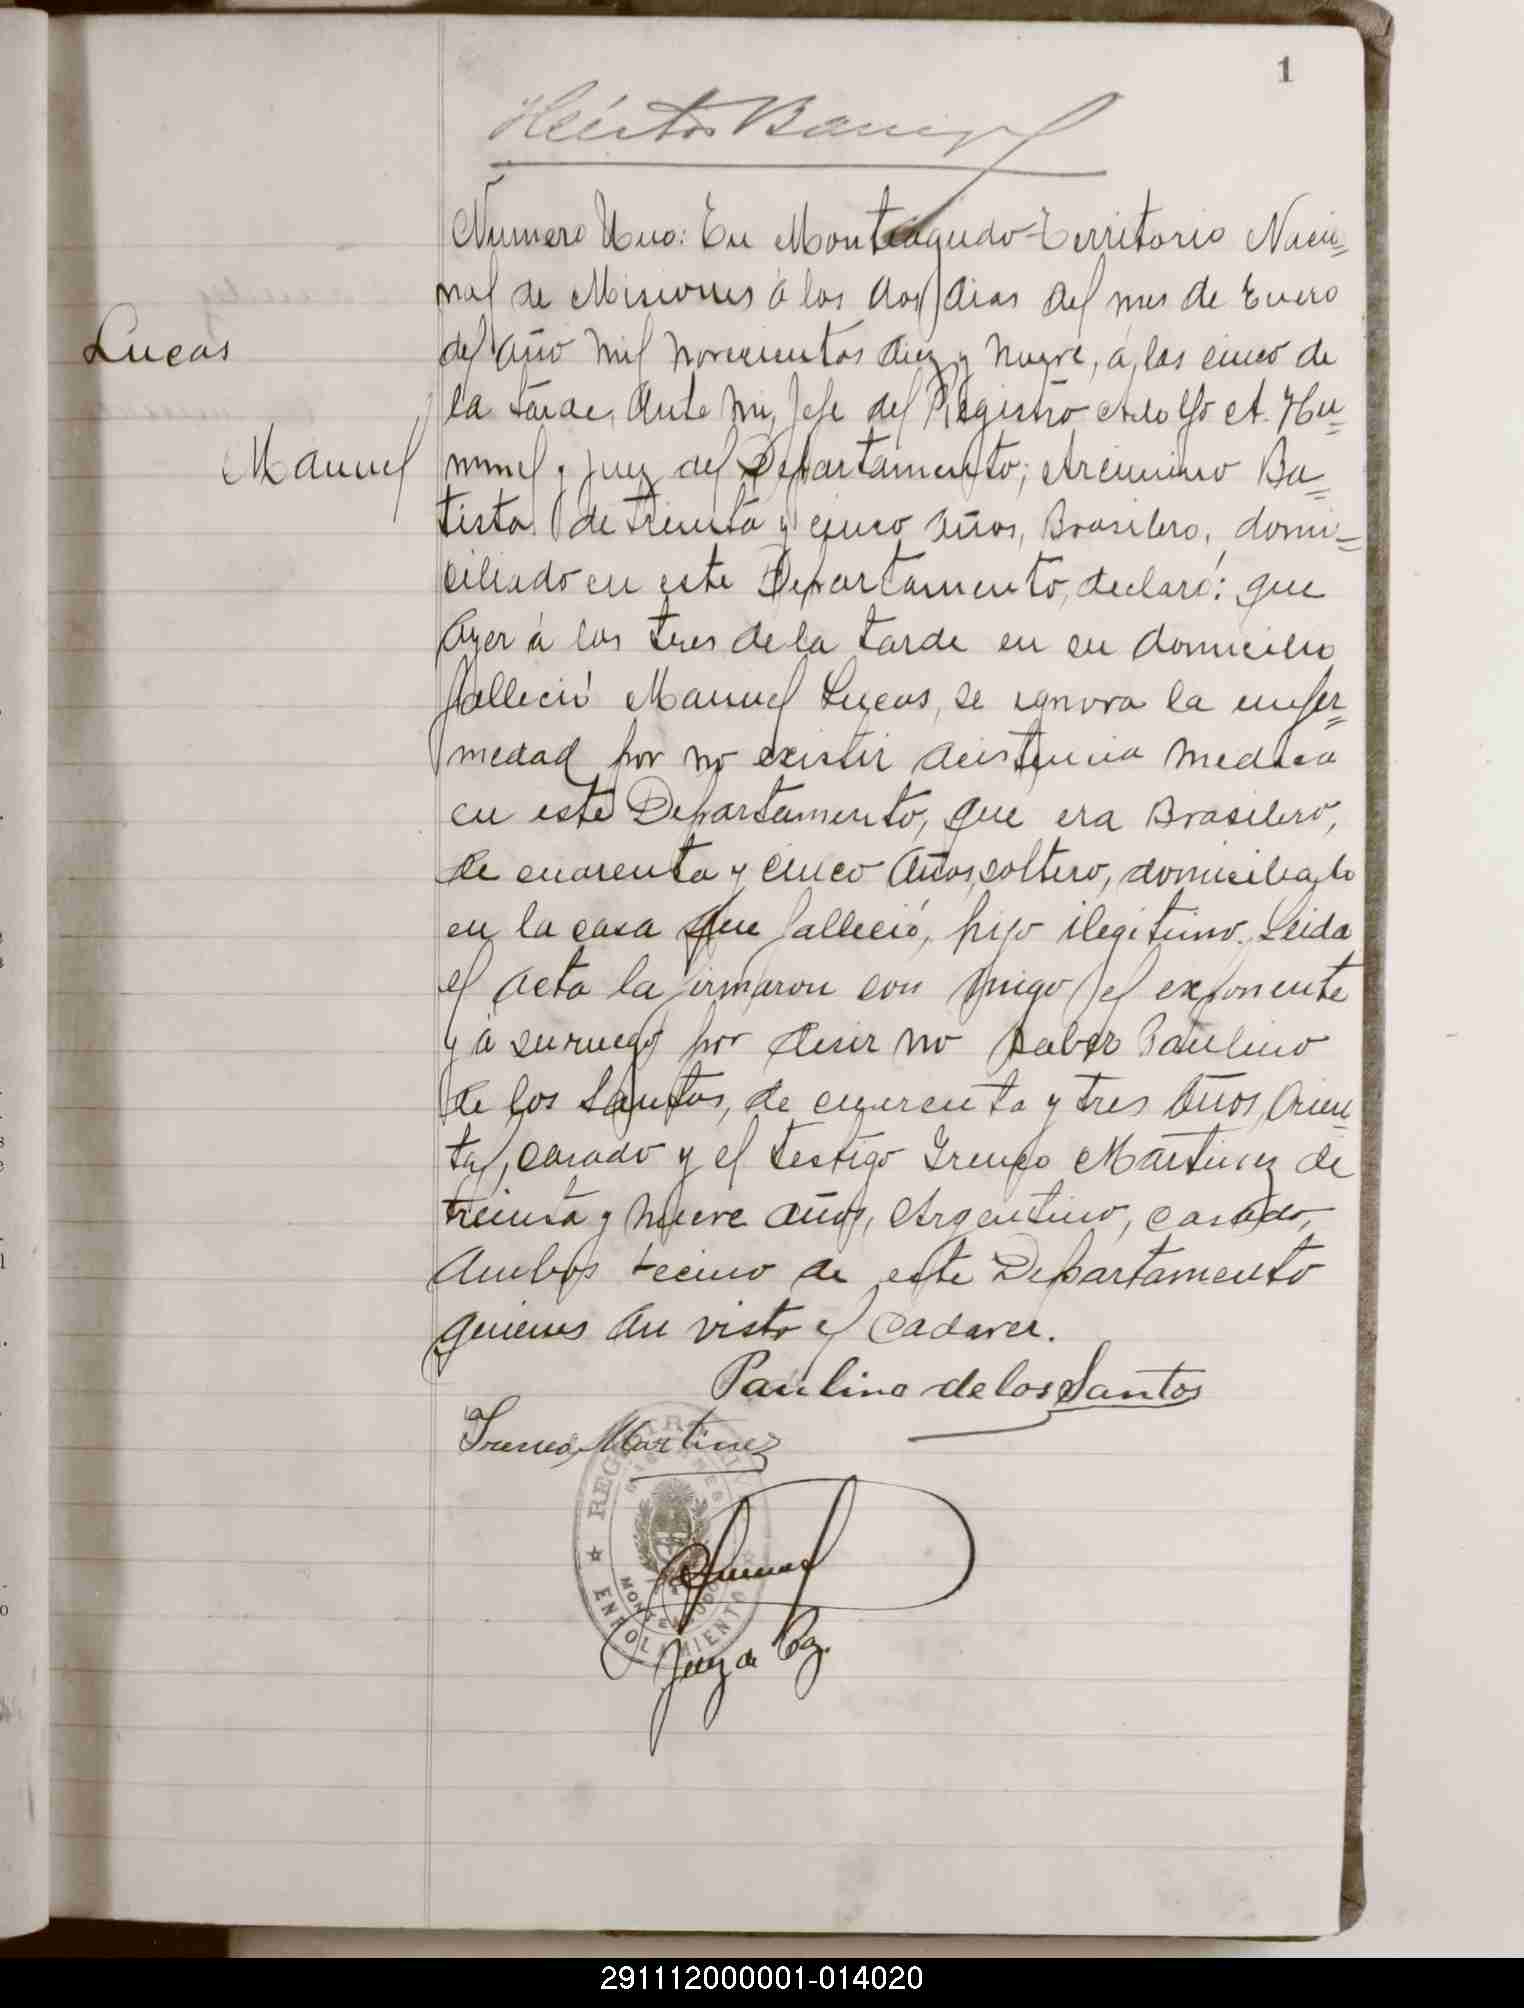 1
Héctor
Numero Uno: En Monteagudo Territorio Nacio=
nal de Misiones á los dos dias del mes de Enero
del año mil novecientos diez y nueve, á las cinco de
Lucas
la tarde, Ante mi, Jefe del Registro Adolfo A. Hu=
Manuel
mmel y juez del Departamento; Arcenino Ba=
tista de treinta y cinco años, Brasilero, domi=
ciliado en este Departamento, declaró: que
ayer á las tres de la tarde en su domicilio
falleció Manuel Lucas, se ignora la enfer=
medad por no existir asistencia medica
en este Departamento, que era Brasilero,
de cuarenta y cinco años, soltero, domiciliado
en la casa que falleció, hijo ilegitimo. Leida
el acta la firmaron con migo el exponente
y á su ruego por desir no saber Paulino
de los Santos, de cuarenta y tres años, Orien=
tal, casado y el testigo Ireneo Martinez de
treinta y nueve años, Argentino, casado,
Ambos vecino de este Departamento
quienes an visto el cadaver.
Paulino de los Santos
Ireneo Martinez
REGISTRO CIVIL
MISIONES
MONTEAGUDO
ENROLAMIENTO
Hummel
Juez de Paz.
291112000001-014020